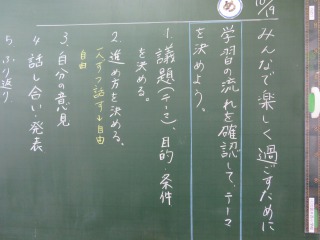 10/19
みんなで楽しく過ごすために
め
学習の流れを確認して、テーマ
を決めよう。
1. 議題(テーマ)、目的・条件
を決める。
2. 進め方を決める。
一人ずつ話す↓自由
自由
3. 自分の意見
4. 話し合い・発表
5. ふり返り